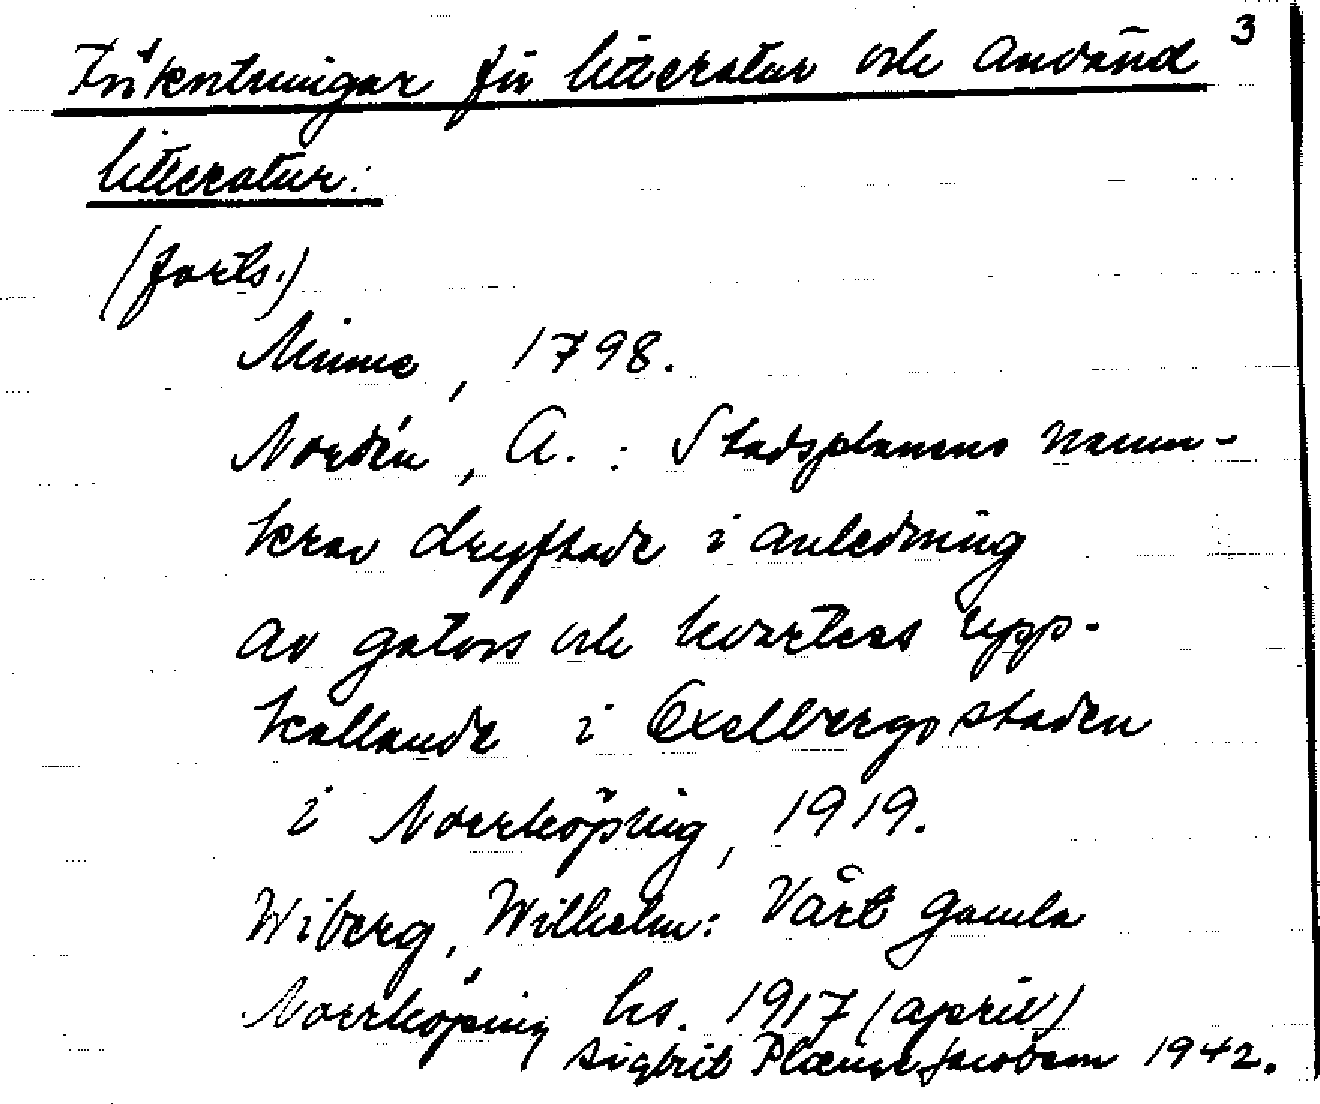 3
Förkortningar för litteratur och använd
litteratur:
(forts.)
Minne, 1798.
Nordén, A. : Stadsplanens namn-
krav dryftade i anledning
av gators och kvarters upp-
kallande i Exelbergsstaden
i Norrköping, 1919.
Wiberg, Wilhelm: Vårt gamla
Norrköping hs. 1917 (april)
Sigbrit Plænge Jacobson 1942.